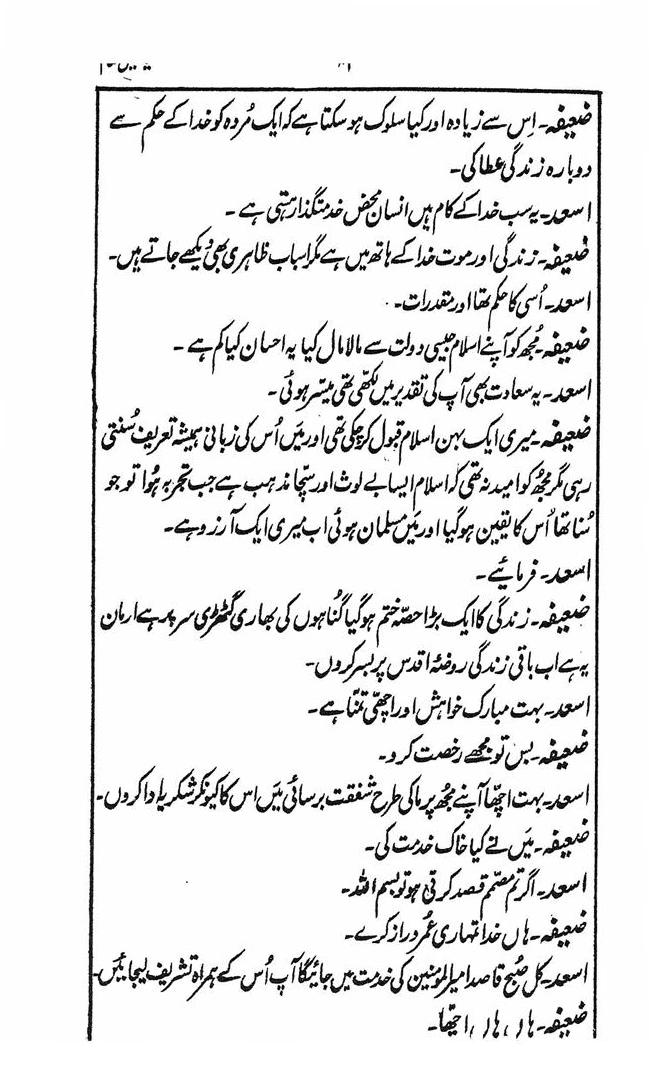 ضعیفہ۔ اِس سے زیادہ اور کیا سلوک ہو سکتا ہے کہ ایک مُردہ کو خدا کے حکم سے
دوبارہ زندگی عطا کی۔
اسعد۔ یہ سب خدا کے کام ہیں انسان محض خدمتگذار ہستی ہے ۔
ضعیفہ۔ زندگی اور موت خدا کے ہاتھ میں ہے مگر اسباب ظاہری بھی دیکھے جاتے ہیں۔
اسعد۔ اُسی کا حکم تھا اور مقدرات۔
ضعیفہ۔ مُجھ کو آپنے اسلام جیسی دولت سے مالا مال کیا یہ احسان کیا کم ہے ۔
اسعد۔ یہ سعادت بھی آپ کی تقدیر میں لکھّی تھی میسّر ہوئی۔
ضعیفہ۔ میری ایک بہن اسلام قبول کر چکی تھی اور میَں اُس کی زبانی ہمیشہ تعریف سُنتی
رہی مگر مجھُ کو امید نہ تھی کہ اسلام ایسا بے لوث اور سچّا مذہب ہے جب تجربہ ہُوا تو جو
سُنا تھا اُس کا یقین ہو گیا اور میَں مسلمان ہوئی اب میری ایک آرزو ہے۔
اسعد۔ فرمائیے۔
ضعیفہ۔ زندگی کا ایک بڑا حصّہ ختم ہو گیا گنُاہوں کی بھاری گٹھڑی سر پر ہے ارمان
یہ ہے اب باقی زندگی روضۂ اقدس پر بسر کروں۔
اسعد۔ بہت مبارک خواہش اور اچھّی تمنّا ہے۔
ضعیفہ۔ بس تو مجھے رخصت کرو۔
اسعد۔ بہت اچھّا آپنے مجھُ پر ماکی طرح شفقت برسائی میَں اس کا کیونکر شکریہ ادا کروں۔
ضعیفہ۔ میَں نے کیا خاک خدمت کی۔
اسعد۔ اگر تم مصمّم قصد کرتی ہو تو بسم اللہ۔
ضعیفہ۔ ہاں خدا تمہاری عُمر دراز کرے۔
اسعد۔ کل صُبح قاصد امیرالمومنین کی خدمت میں جائیگا آپ اُس کے ہمراہ تشریف لیجائیں۔
ضعیفہ۔ ہاں ہاں اچھّا۔